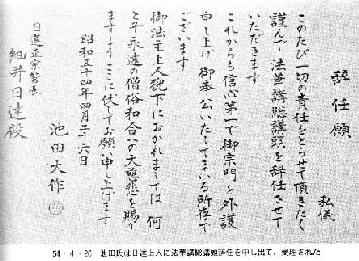 辞任願
私儀
このたび一切の責任をとらせて頂きたく
謹んで法華講総講頭を辞任させて
いただきます
これからも信心第一で御宗門を外護
申し上げ御奉公いたしてまいる所存で
ございます
御法主上人猊下におかれましては何
とぞ永遠の僧俗和合への大慈悲を賜り
ますようここに伏してお願い申し上げます
昭和五十四年四月二十六日
池田大作
日蓮正宗管長
細井日達殿
54・4・26 池田氏は日達上人に法華講総講頭辞任を申し出て、受理された